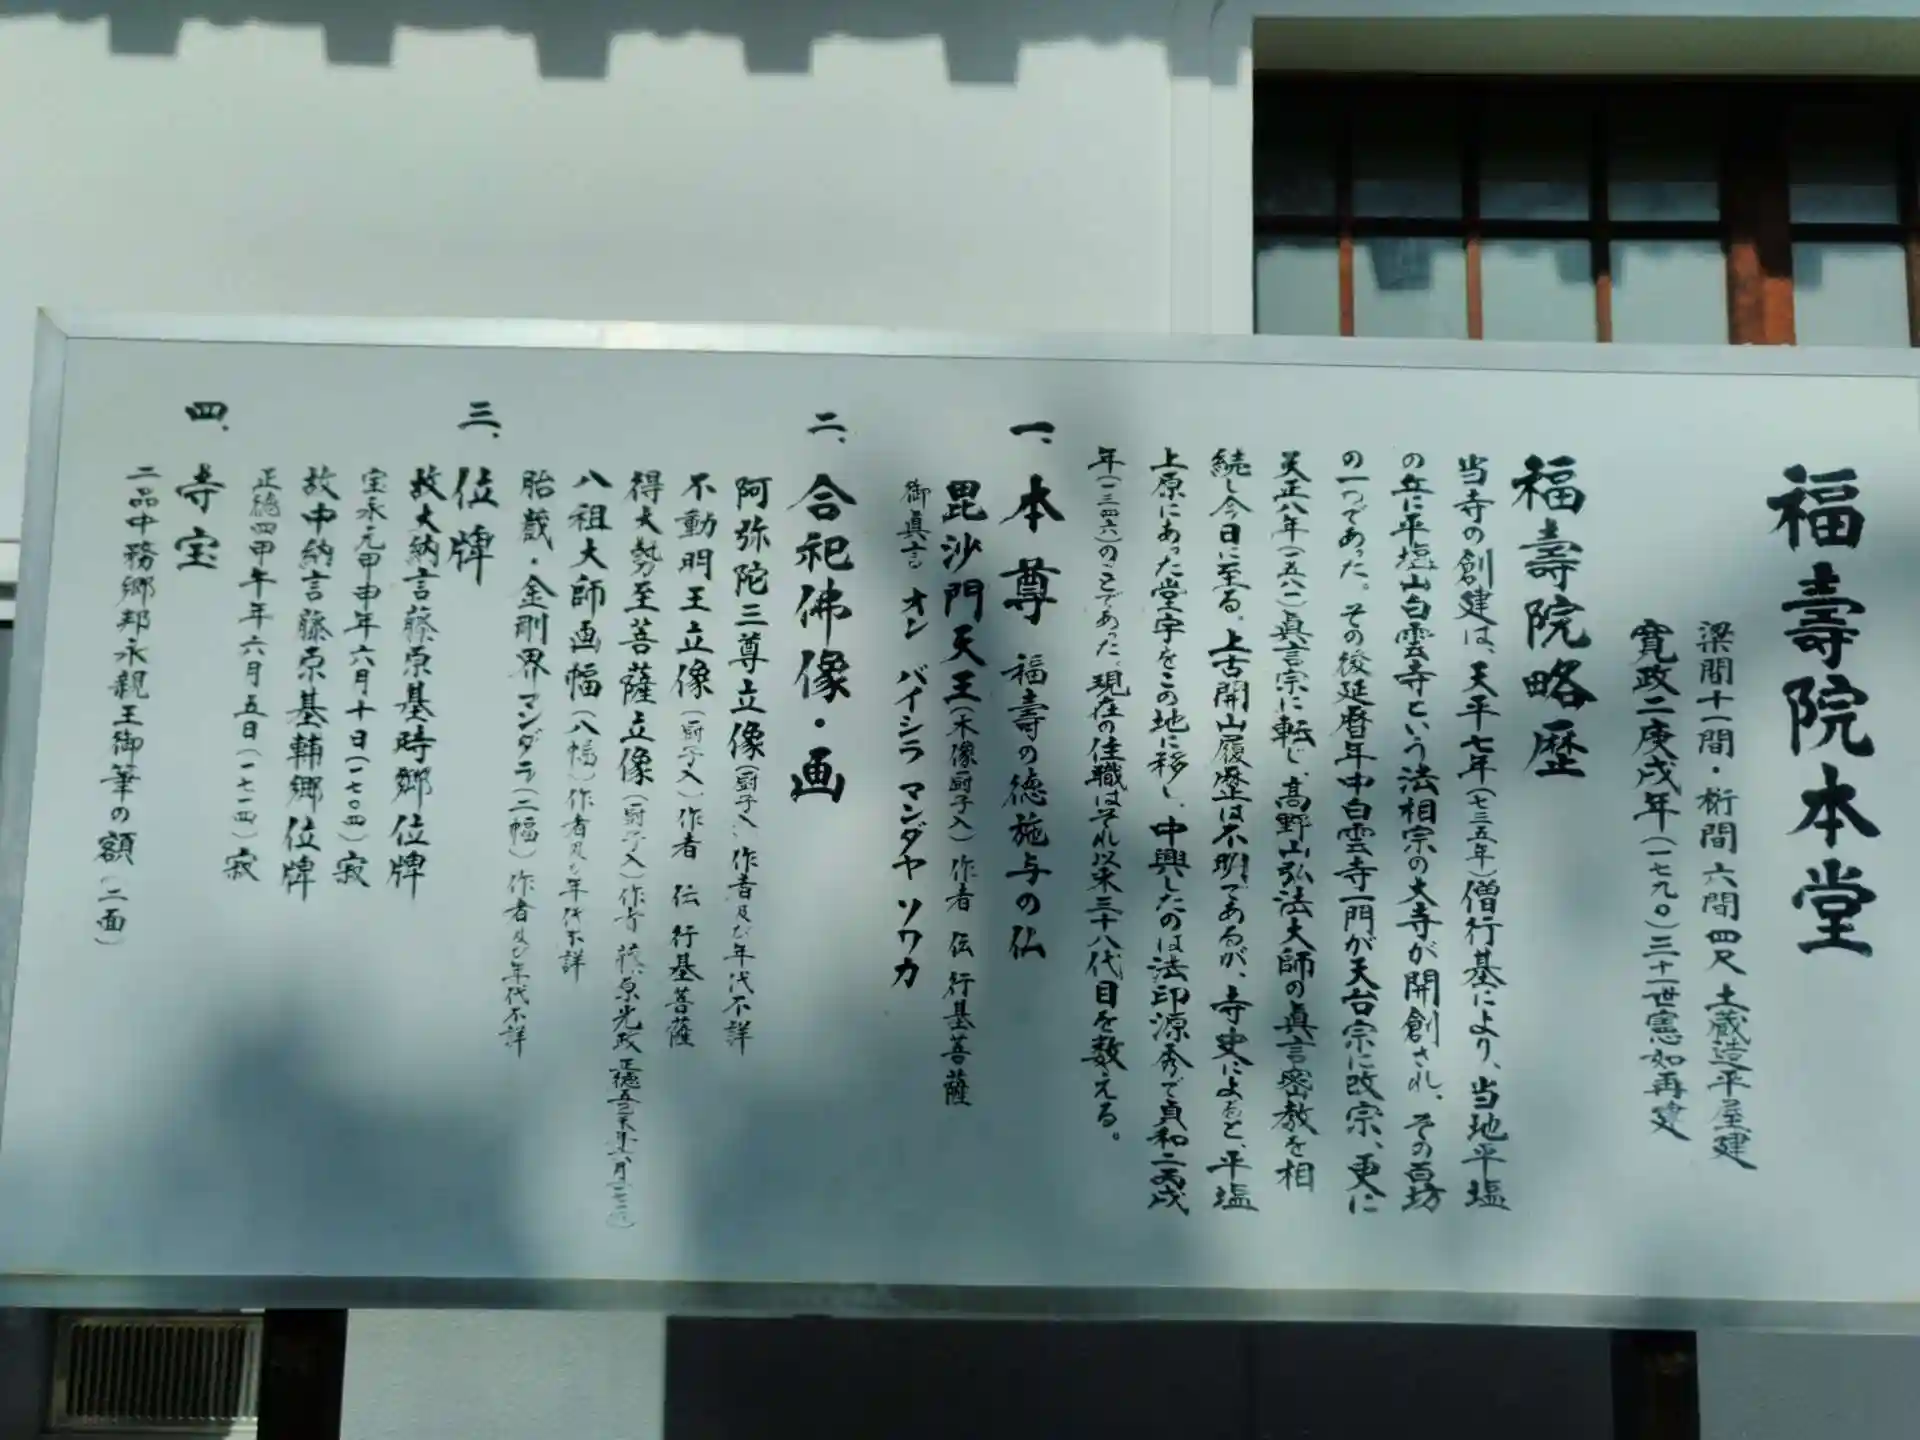 福壽院本堂
梁間十一間・桁間六間四尺土蔵造平屋建
寛政二庚戌年(一七九〇)三十一世憲如再建
福壽院略歴
当寺の創建は、天平七年(七三五年)僧行基により、当地平塩
の丘に平塩山白雲寺という法相宗の大寺が開創され、その百坊
の一つであった。その後延暦年中白雲寺一門が天台宗に改宗、更に
天正八年(一五八〇)眞言宗に転じ、高野山弘法大師の眞言密教を相
続し今日に至る。上古開山履歴は不明であるが、寺史によると、平塩
上原にあった堂宇をこの地に移し、中興したのは法印源秀で貞和二丙戌
年(一三四六)のことであった。現在の住職はそれ以来三十八代目を数える。
一、本尊 福壽の徳施与の仏
毘沙門天王(木像厨子入)作者 伝 行基菩薩
御眞言 オン バイシラ マンダヤ ソワカ
二、合祀佛像・画
阿弥陀三尊立像(厨子入)作者及び年代不詳
不動明王立像(厨子入)作者 伝 行基菩薩
得大勢至菩薩立像(厨子入)作者 藤原光政 正徳五乙未年六月
八祖大師画幅(八幅)作者及び年代不詳
胎蔵・金剛界マンダラ(二幅)作者及び年代不詳
三、位牌
故大納言藤原基時郷位牌
宝永元甲申年六月十日(一七〇四)寂
故中納言藤原基輔郷位牌
正徳四甲午年六月五日(一七一四)寂
四、寺宝
二品中務郷邦永親王御筆の額(二面)